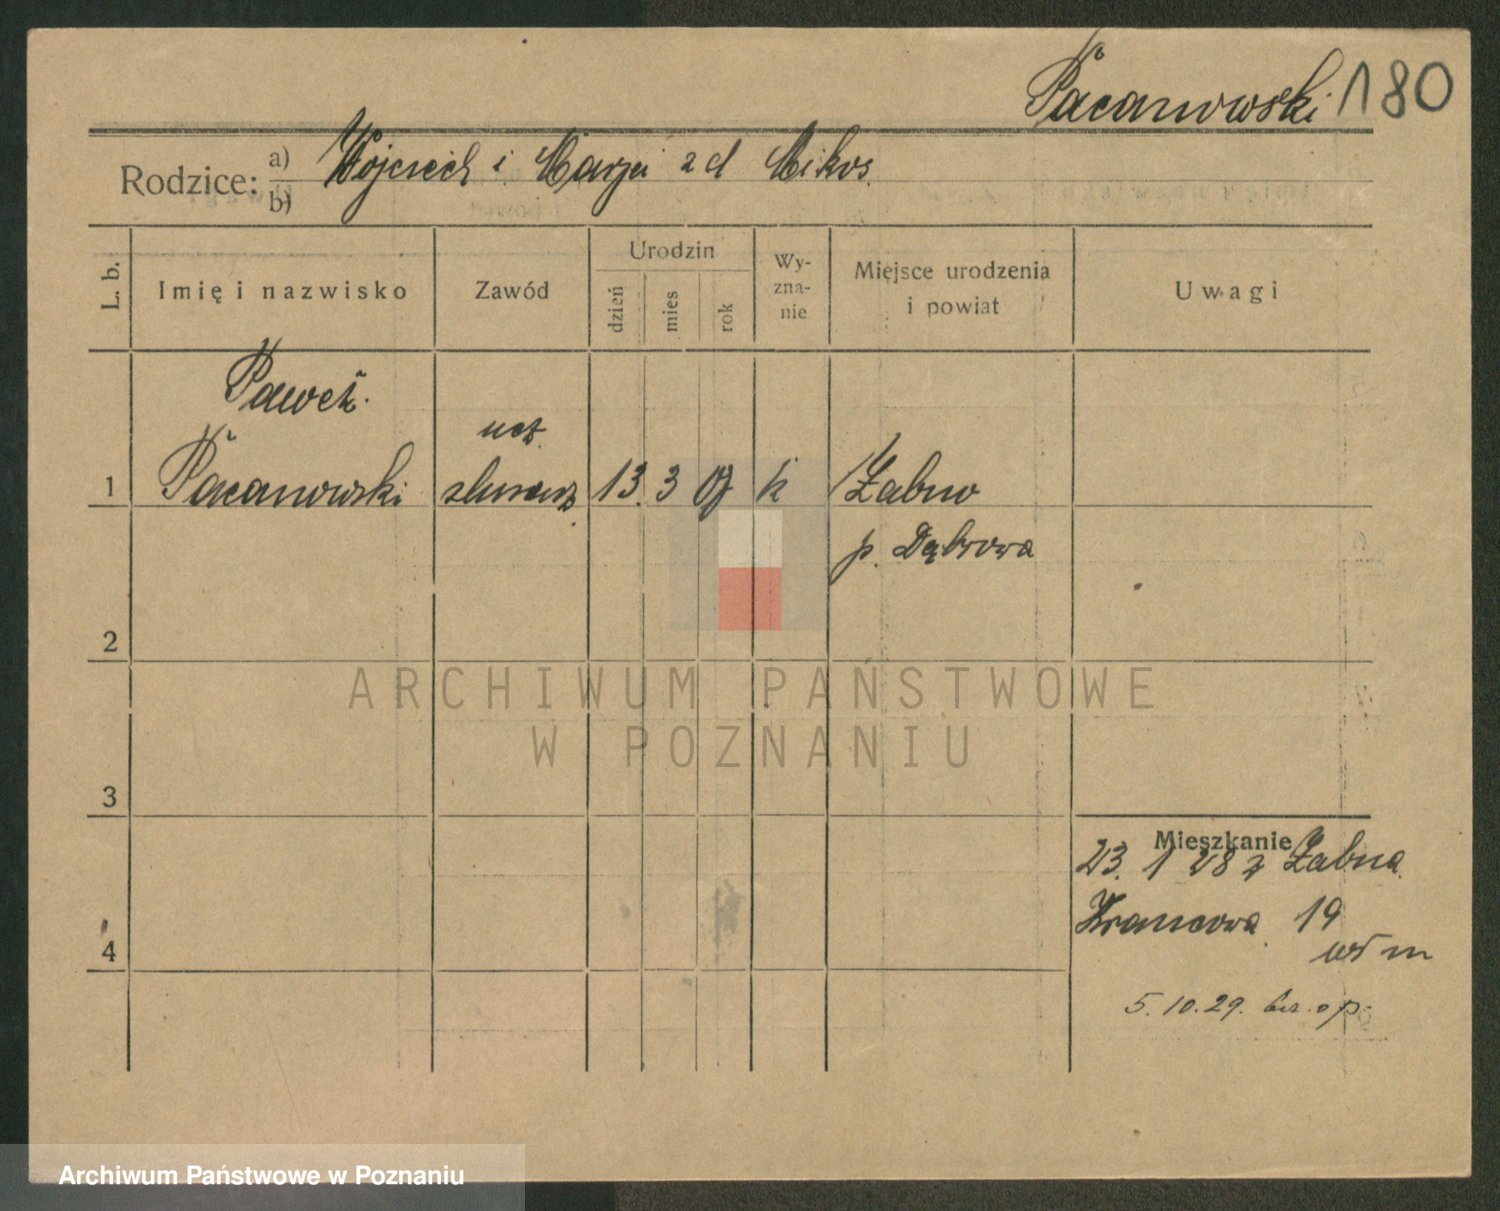 Pacanowski 180
Rodzice: a) Wojciech i Marja zd Mikos
b)
L. b.
Imię i nazwisko
Zawód
Urodzin
dzień
mies
rok
Wy-
zna-
nie
Miejsce urodzenia
i powiat
Uwagi
Paweł
ucz.
1 Pacanowski 13. 3 07 k Żabno
p. Dąbrowa
2
ARCHIWUM PAŃSTWOWE
W POZNANIU
3
Mieszkanie
23. 1 28 z Żabna
19
4
5. 10. 29. bez. op.
Archiwum Państwowe w Poznaniu